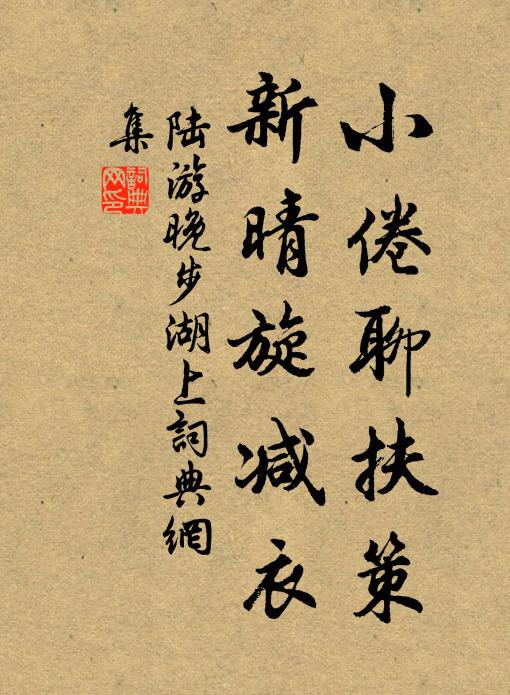 小倦聊扶策
新晴旋减衣
陆游晚步湖上詞典網
集
詞典网印